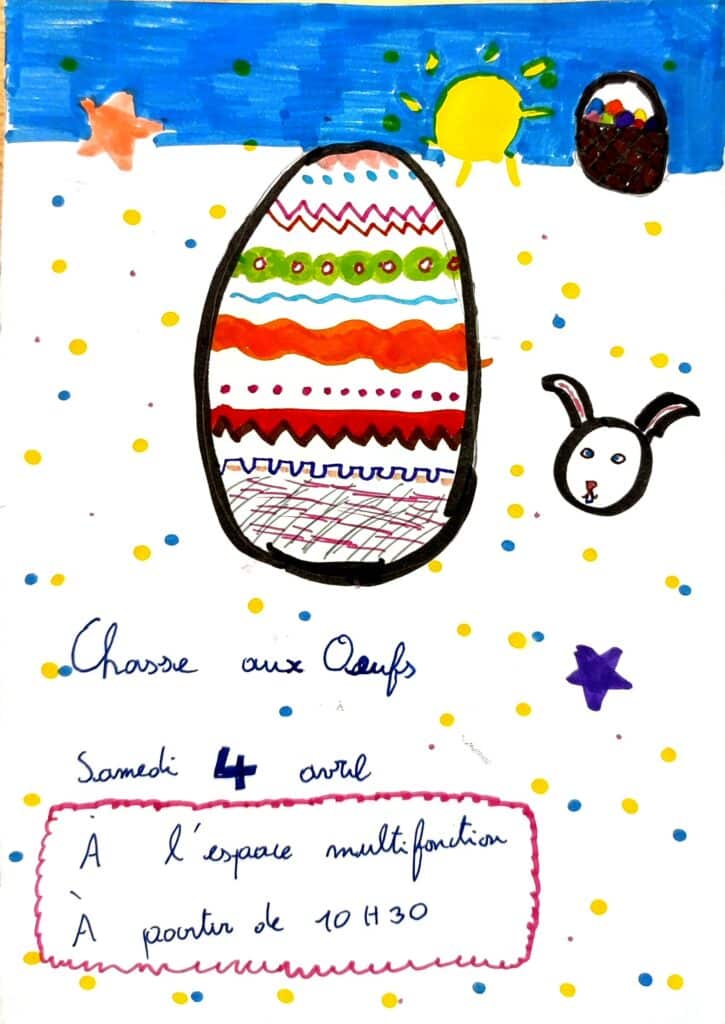 Chasse aux Oeufs
Samedi 4 avril
À l'espace multifonction
À partir de 10H30